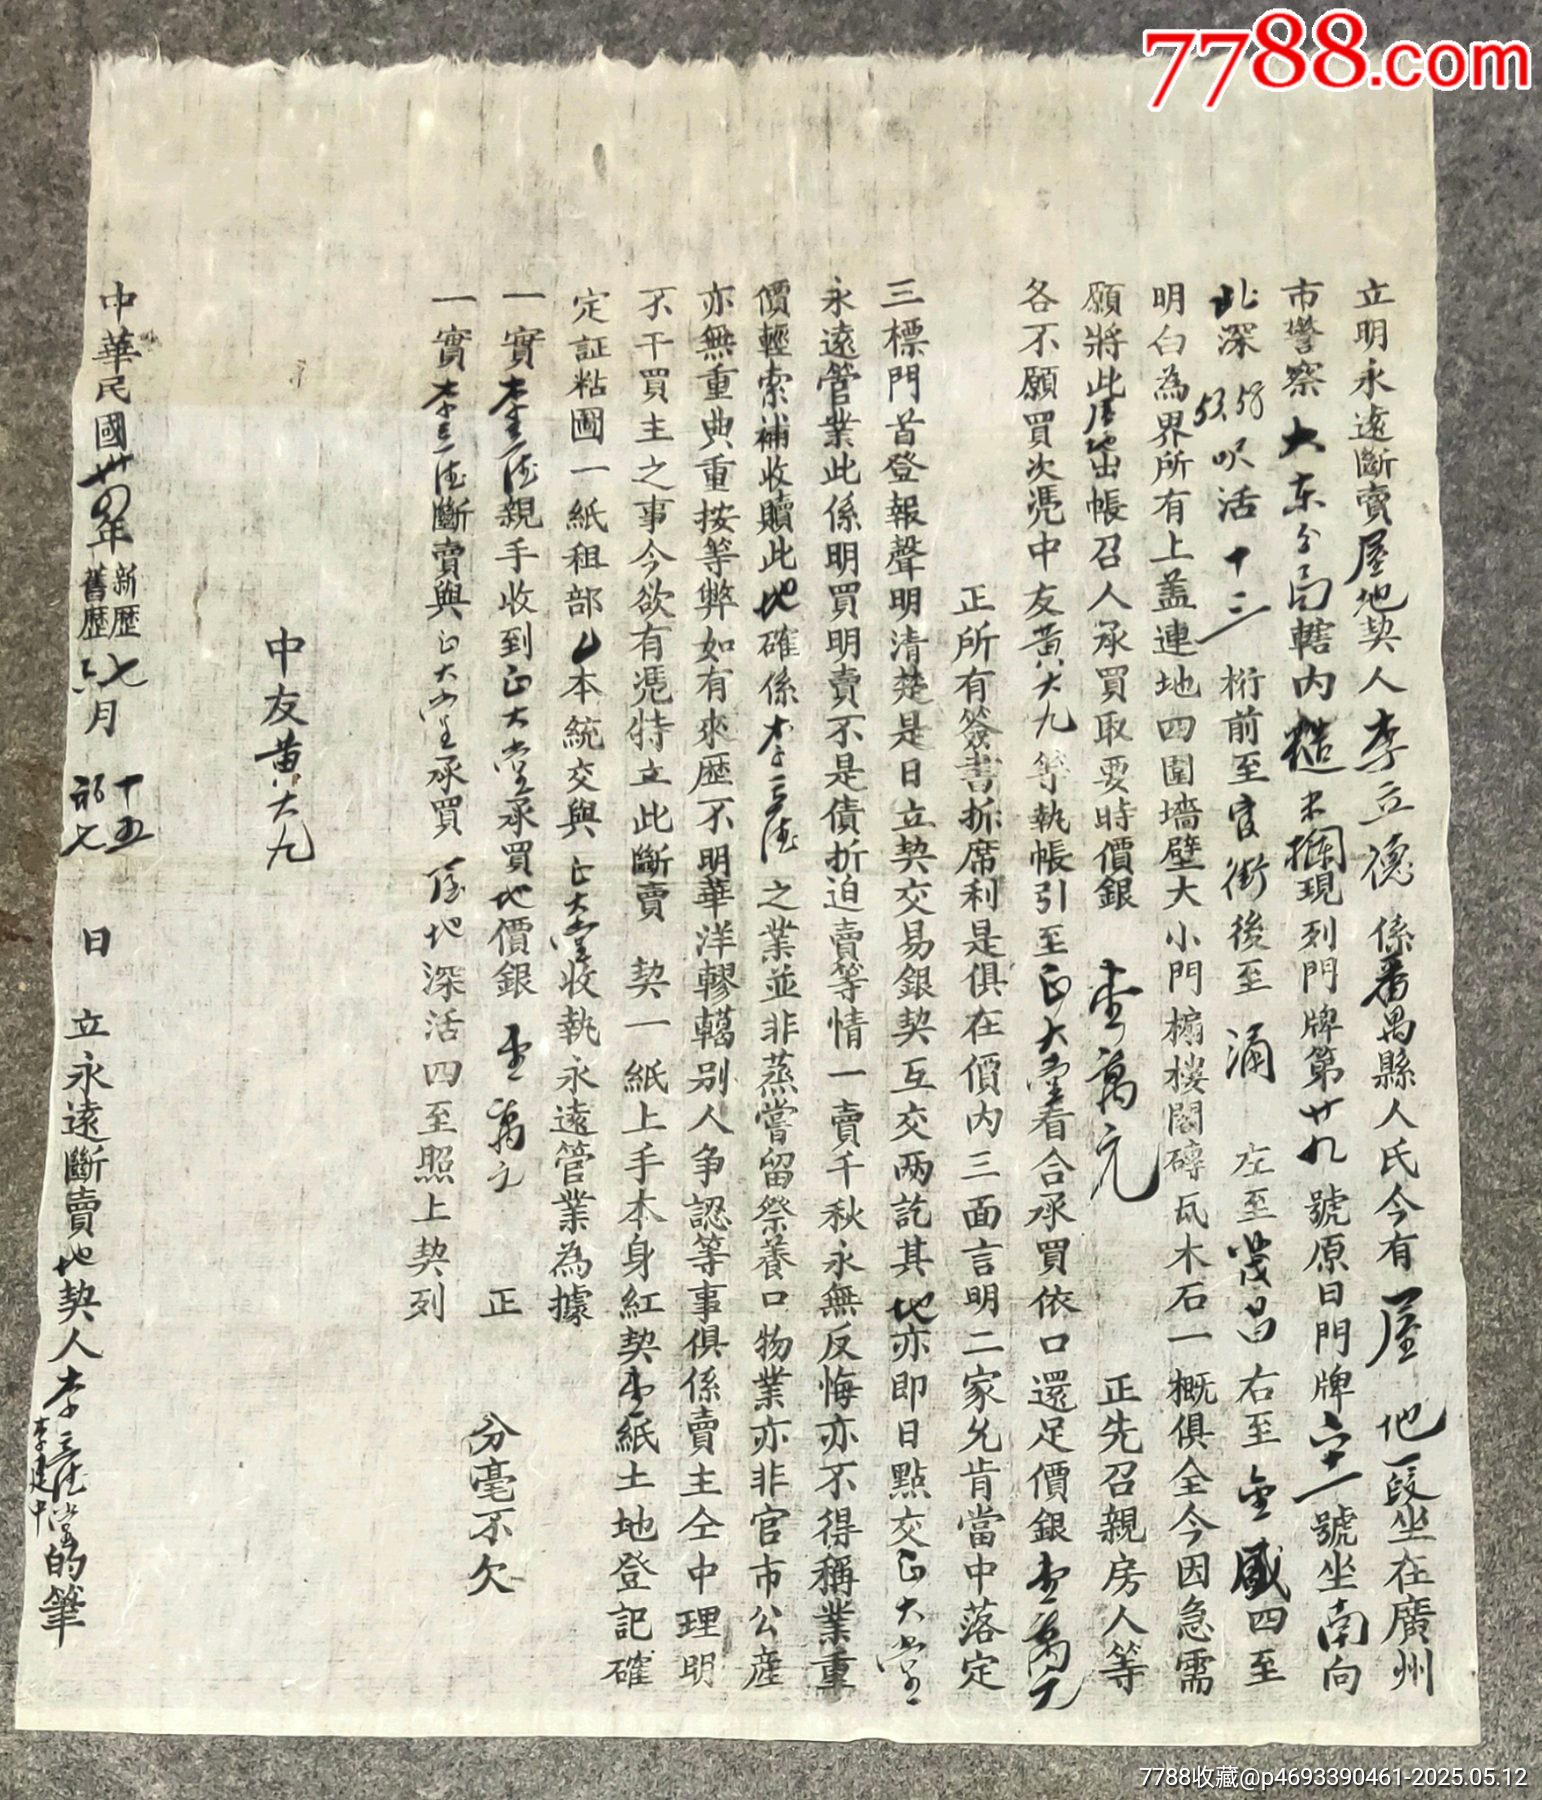 7788.com
立明永遠斷賣屋地契人李立德係番禺縣人氏今有屋地一段坐在廣州
市警察大東分局轄内糙米欄現列門牌第廿九號原日門牌六十一號坐南向
北深53.58呎活十三桁前至官街後至涌左至茂昌右至金盛四至
明白為界所有上盖連地四圍墻壁大小門櫥樓閣磚瓦木石一概俱全今因急需
願將此屋地出帳召人承買取要時價銀壹萬元正先召親房人等
各不願買次憑中友黄大九等執帳引至正大堂看合承買依口還足價銀壹萬元
正所有簽書折席利是俱在價内三面言明二家允肯當中落定
三標門首登報聲明清楚是日立契交易銀契互交两訖其地亦即日點交正大堂
永遠管業此係明買明賣不是債折迫賣等情一賣千秋永無反悔亦不得稱業重
價輕索補收贖此地確係李立德之業並非蒸嘗留祭養口物業亦非官市公産
亦無重典重按等弊如有來歷不明華洋轇轕别人争認等事俱係賣主仝中理明
不干買主之事今欲有憑特立此斷賣契一紙上手本身紅契壹紙土地登記確
定証粘圖一紙租部乙本統交與正大堂收執永遠管業為據
一實李立德親手收到正大堂承買地價銀壹萬元正分毫不欠
一實李立德斷賣與正大堂承買屋地深活四至照上契列
中友黄大九
中華民國卅四年新歷七月十五舊歷六月初七日立永遠斷賣地契人李立德堂的筆
李建中
7788收藏@p4693390461-2025.05.12